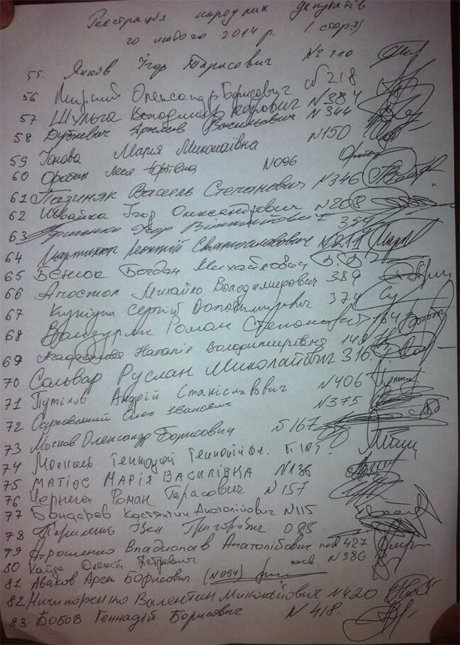 Реєстрація народних депутатів
20 лютого 2014 р. (стор 3)
55. Янків Ігор Тарасович № 210
56 Мирний Олександр Борисович № 218
57 Шульга Володимир N 384
58 Дуткевич Васильович N 344
59 Іонова Марія Миколаївна N150
60 Оробець Леся Юріївна N096
61 Пазиняк Василь Степанович N346
62 Швайка Ігор Олександрович N208
63 Ігор 354
64 Мартинюк Леонтій Святославович N211
65 Бенюк Богдан Михайлович
66 Апостол Михайло Володимирович 389
67 Куніцин Сергій Володимирович 374
68 Роман Степанович 164
69 Агафонова Наталія Володимирівна 148
70 Сольвар Руслан Миколайович 316
71 Путілов Андрій Станіславович N406
72 Осуховський Олег Іванович N375
73 Мочков Олександр Борисович N167
74 Москаль Геннадій Геннадійов.
75 МАТІОС МАРІЯ ВАСИЛІВНА N136
76 Чернега Роман Тарасович N157
77 Бондарєв Костянтин Анатолійович N115
78 Кириленко Іван Григорович 085
79 Атрошенко Владислав Анатолійович під 427
80 Олексій Петрович N386
81 Аваков Арсен Борисович (N094)
82 Ничипоренко Валентин Миколайович N420
83 Бобов Геннадій Борисович N 418.